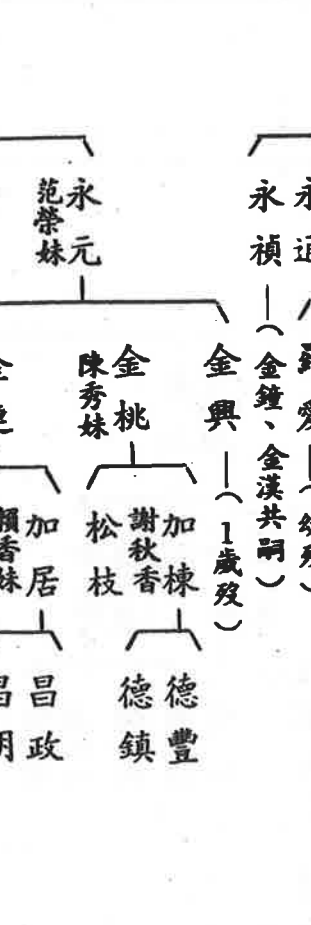 永禎
（金鐘、金漢共嗣）
永元
范榮妹
金興
（1歲歿）
金桃
陳秀妹
加棟
謝秋香
松枝
加居
賴香妹
德豐
德鎮
昌政
昌明